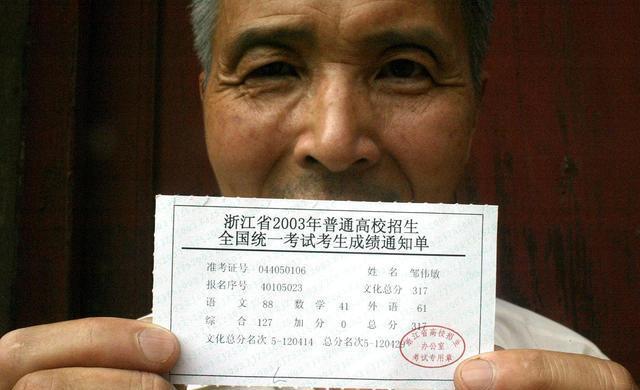 浙江省2003年普通高校招生
全国统一考试考生成绩通知单
准考证号 044050106 姓 名 邹伟敏
报名序号 40105023 文化总分 317
语 文 88 数 学 41 外 语 61
综 合 127 加 分 0 总 分 317
文化总分名次 5-120414 总分名次5-120429
浙江省高校招生
办公室
考试专用章